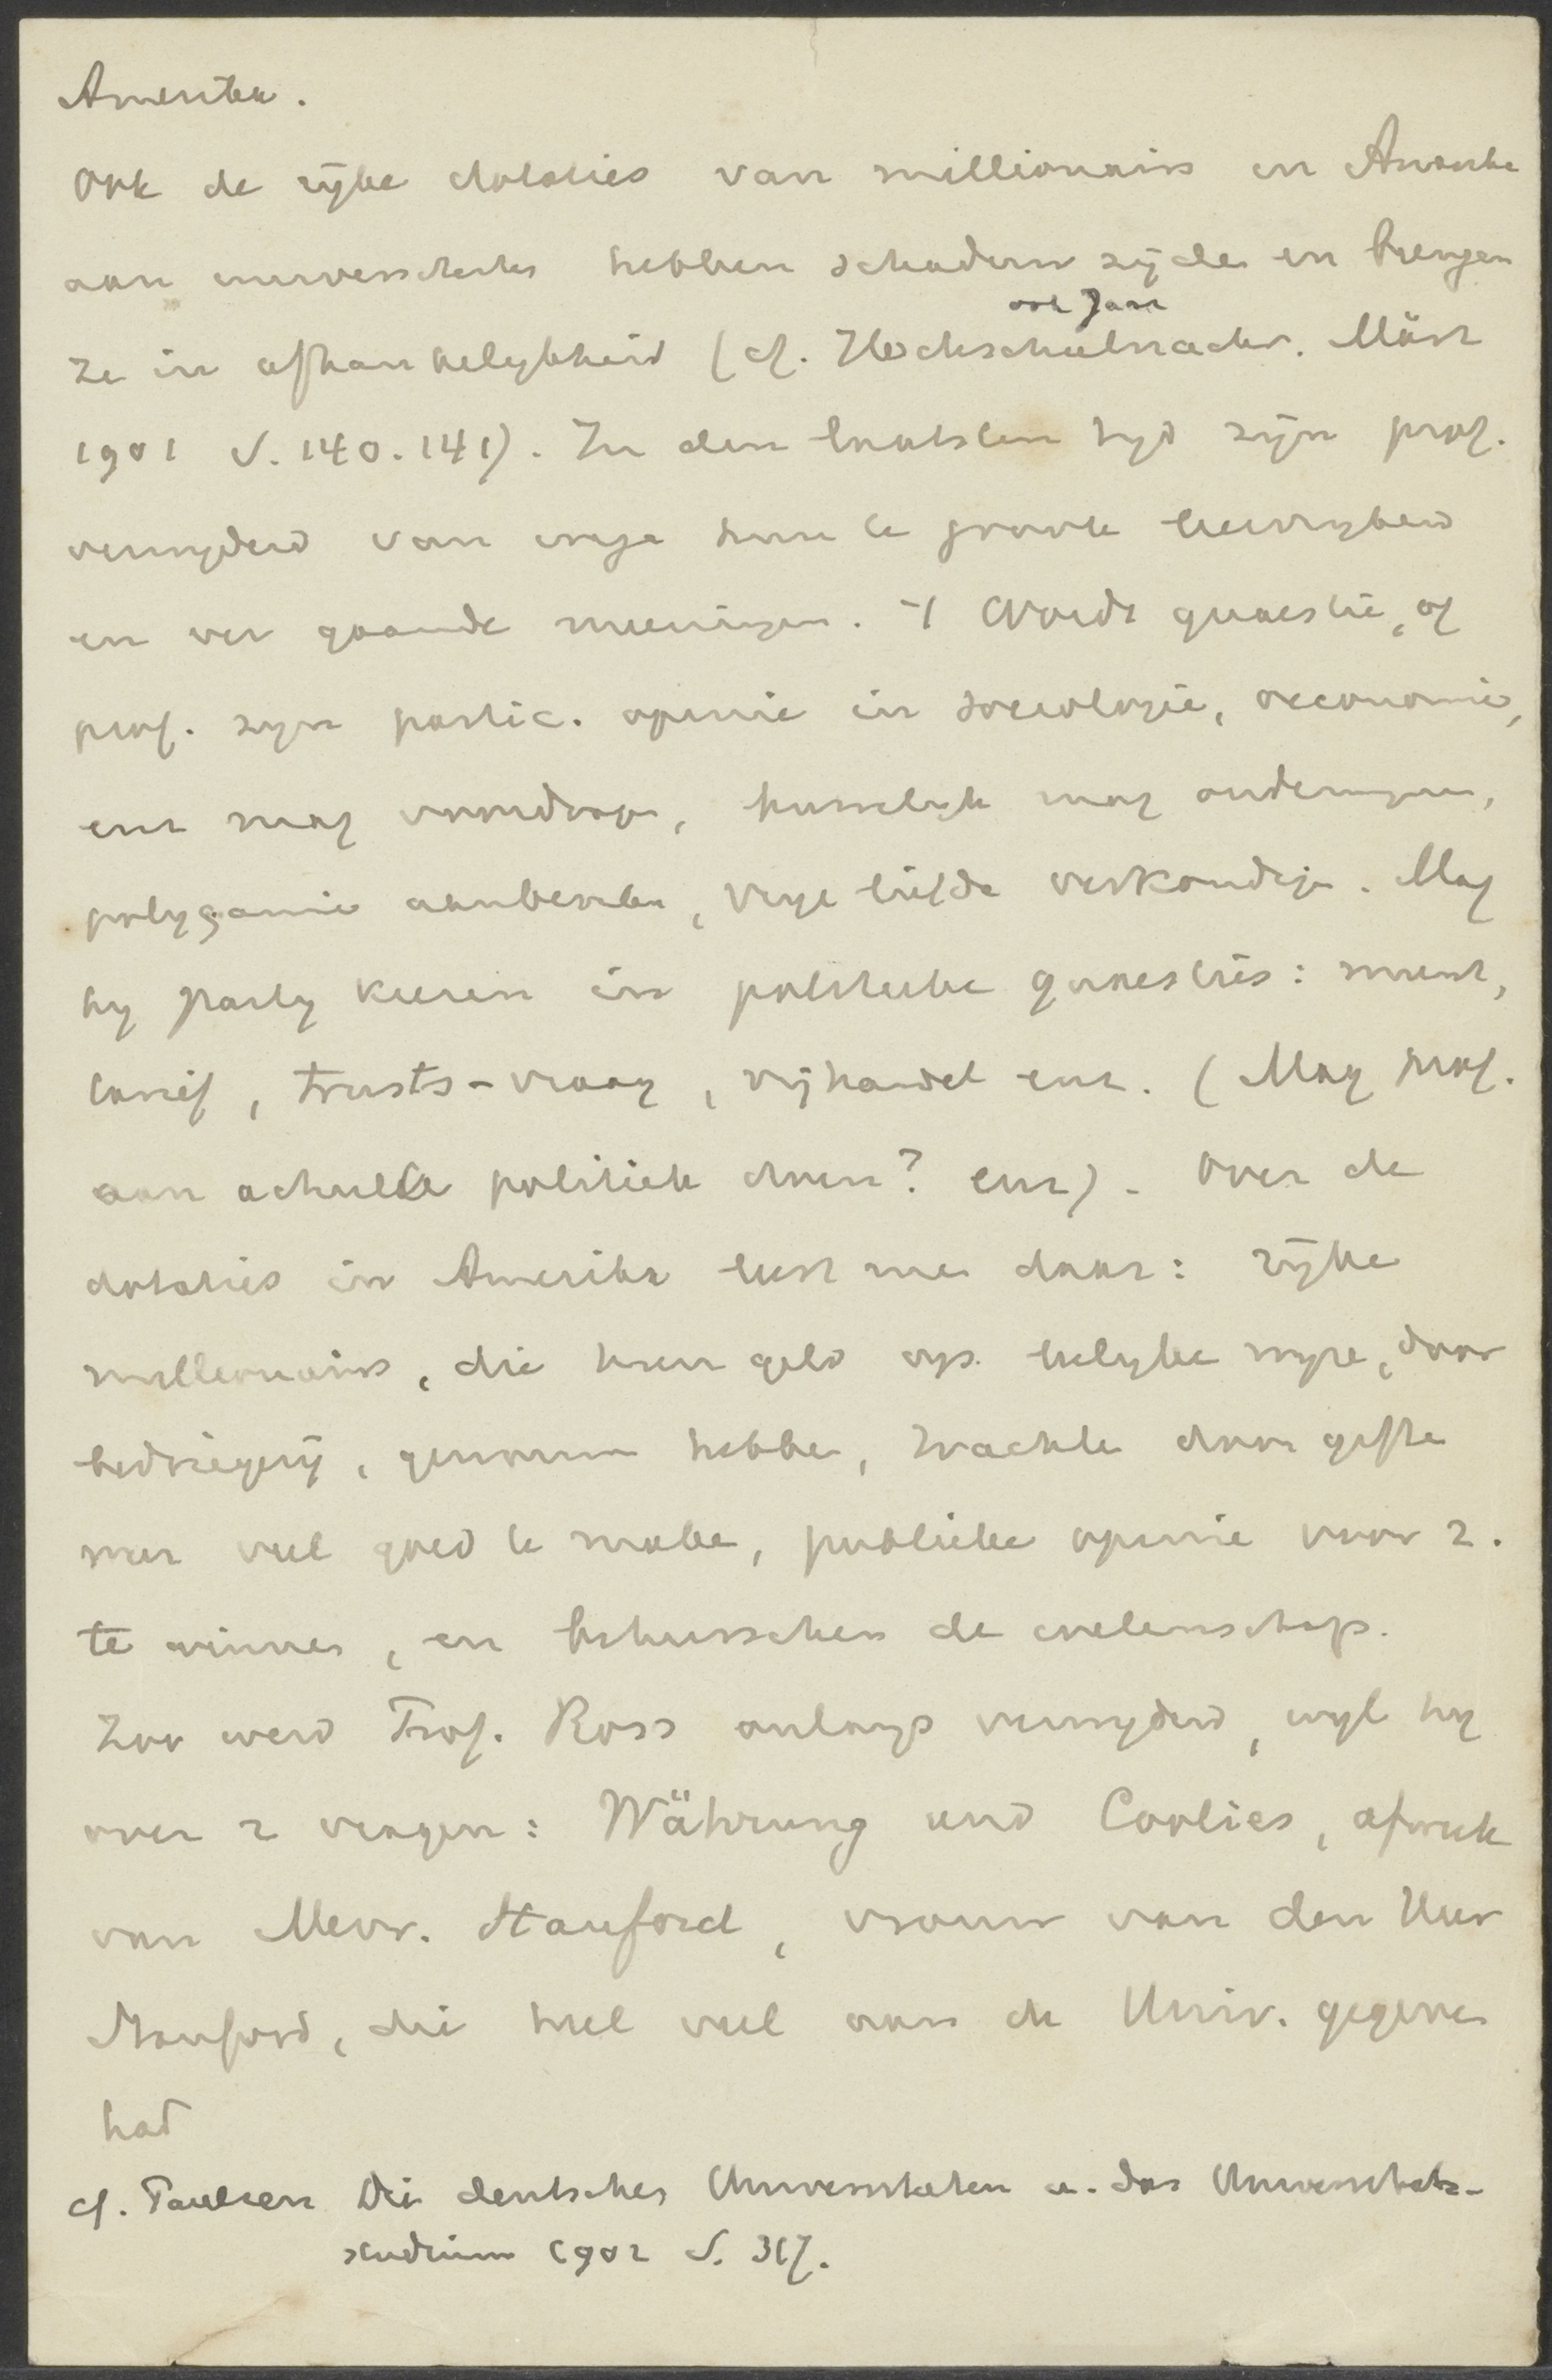 Amerika.
Ook de rijke dotaties van millionairs in Amerika
aan universiteiten hebben schaduw zijde en brengen
ook Jan
ze in afhankelykheid (cf. Hochschulnachr. März
1901 S. 140. 141). In den laatsten tyd zijn prof.
verwyderd van wege hun te groote vrijheid
en ver gaande meeningen. 't Wordt quaestie, of
prof. zyn partic. opinie in sociologie, oeconomie,
enz mag voordrage, huwelyk mag ondermynen,
polygamie aanbevelen, vrye liefde verkondige. Mag
hy party kiezen in politieke quaesties: munt,
tarief, trusts-vraag, vrijhandel enz. (Mag prof.
aan actueele politiek doen? enz). Over de
dotaties in Amerika leest men daar: rijke
millionairs, die hun geld op lelyke wyze, door
bedriegerij, gewonnen hebbe, trachte door gifte
weer veel goed te make, publieke opinie voor z.
te winnen, en beheerschen de wetenschap.
Zoo werd Prof. Ross onlangs verwyderd, wyl hy
over 2 vragen: Währung und Coolies, afweek
van Mevr. Stanford, vrouw van den Heer
Stanford, die heel veel aan de Univ. gegeven
had
cf. Paulsen Die deutschen Universitäten u. das Universitäts-
studium 1902 S. 317.